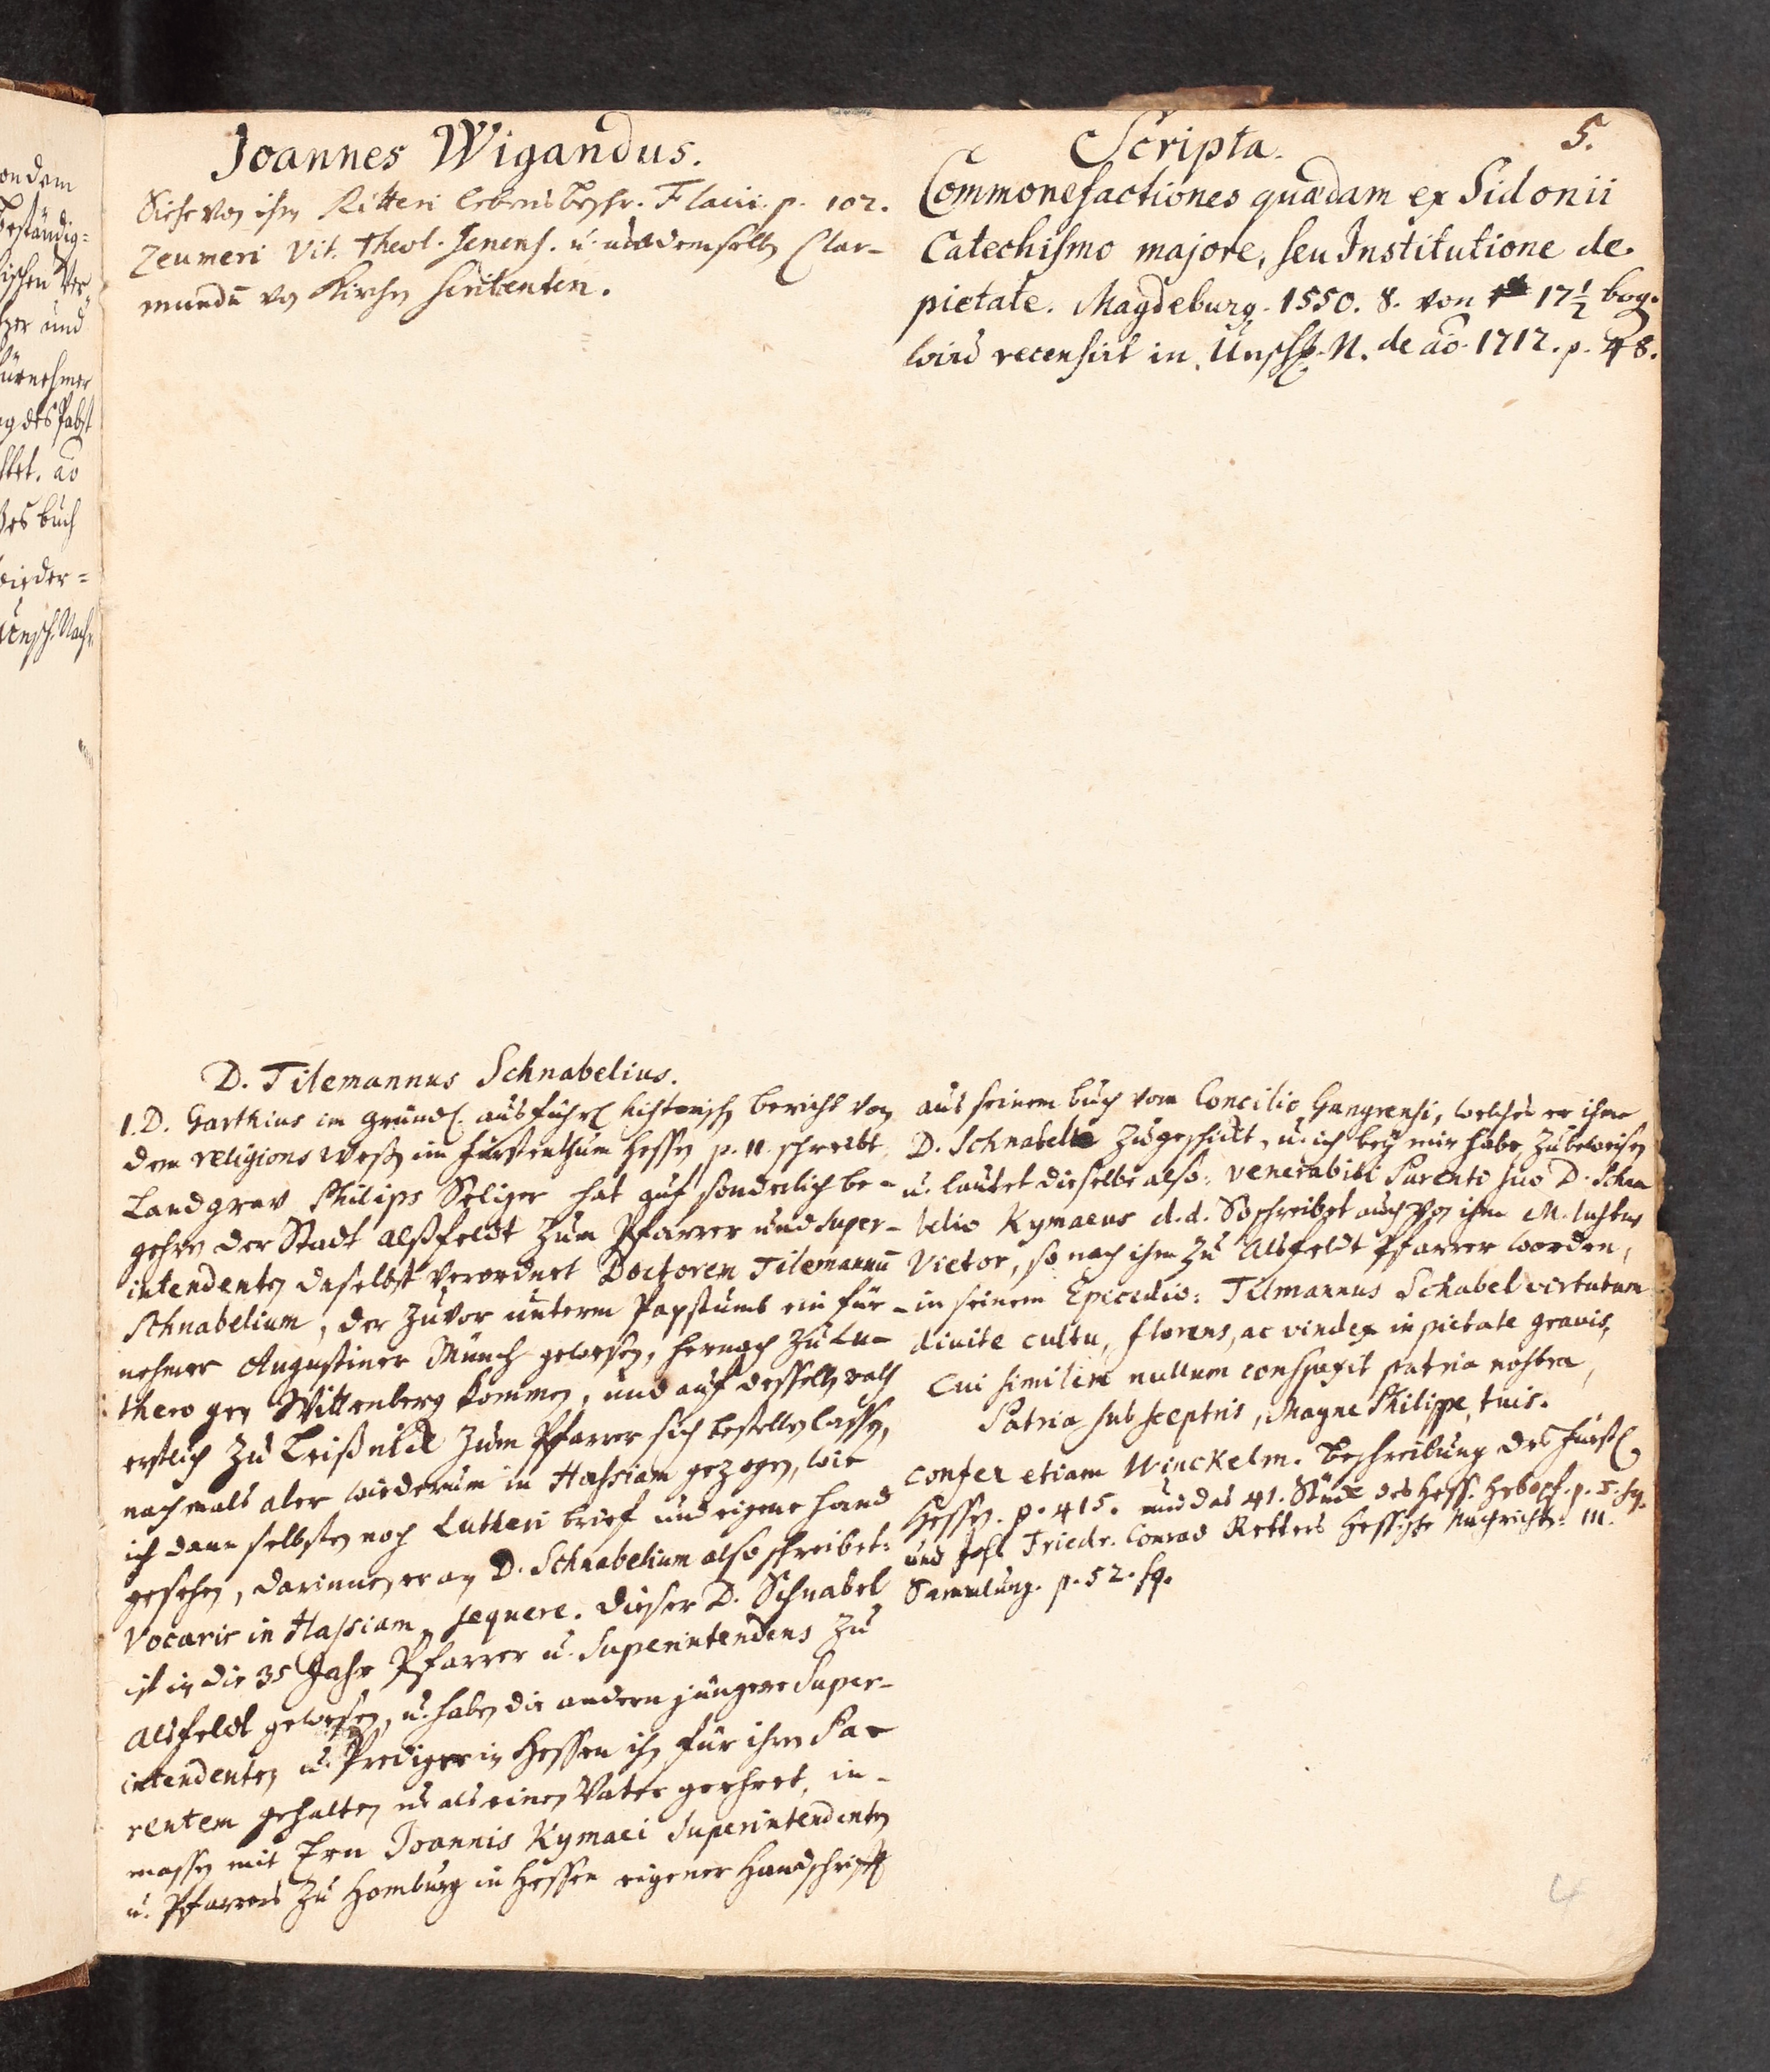 5.
Joannes Wigandus.
Siehe von ihm Ritteri lebensbeschr. Flacii. p. 102.
Zeumeri Vit. Theol. Jenens. u. aus demselben Clar-
mundū von Kirchen scribenten.
Scripta.
Commonefactiones quædam ex Sidonii
Catechismo majore, seu Institutione de
pietate. Magdeburg. 1550. 8. von 17 1/2 bog.
wird recensirt in Unsch. N. de aō. 1712. p. 48.
D. Tilemannus Schnabelius.
1. D. Garthius im gründl. ausführl. historisch bericht von
dem religions wesen im fürstenthum Hessen p. 11. schreibt,
Landgrav Philips Seliger hat auf sonderlich be-
gehren der Stadt Alßfeldt zum Pfarrer und super-
intendenten daselbst verordnet Doctorem Tilemannū
Schnabelium, der zuvor unterm Papstumb ein für-
nehmer Augustiner Münch gewesen, hernach zu Lu-
thero gen Wittenberg kommen, und auf desselben rath
erstlich zu Leißnick zum Pfarrer sich bestellen lassen,
nachmals aber wiederum in Hassiam gezogen, wie
ich dann selbsten noch Lutheri brief und eigene hand
gesehen, darinnen er an D. Schnabelium also schreibet:
Vocaris in Hassiam, sequere. dieser D. Schnabel
ist in die 35 Jahr Pfarrer u. Superintendens zu
Alsfeldt gewesen, u. haben die andern jüngere Super-
intendenten u. Prediger in Hessen ihn für ihren Pa-
rentem gehalten u. als einen Vater geehret, in-
massen mit Ern Joannis Kymaei Superintendenten
u. Pfarrers zu Homburg in Hessen eigener Handschrifft
aus seinem buch vom Concilio Gangrensi, welches er ihme
D. Schnabeln zugeschickt, u. ich bey mir habe, zubeweisen
u. lautet dieselbe also: venerabili Parenti suo D. Schna
belio Kymaeus d. d. So schreibet auch von ihm M. Justus
Vietor, so nach ihm zu Alsfeldt Pfarrer worden,
in seinem Epicedio: Tilmannus Schabel virtutum
divite cultu, florens, ac vindex in pietate gravis,
Cui similem nullum conspexit patria nostra,
Patria sub sceptris, Magne Philippe, tuis.
confer etiam Winckelm. Beschreibung des Fürstl.
Hessen. p. 415. und das 41. Stück des Hess. Hebopf. p. 5. sq.
und Joh. Friedr. Conrad Retters Hessische Nachricht. III.
Sammlung. p. 52. sq.
4